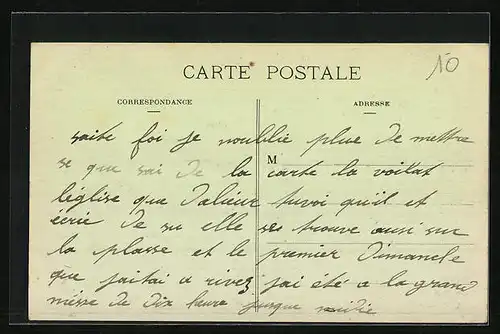 10
CARTE POSTALE
CORRESPONDANCE
ADRESSE
saite foi je noublie plue de mettre
se que sai de la carte la voilat
M
léglise que dalieur tuvoi quil et
écrie de su elle se trouve aussi sur
la plasse et le premier dimancle
que jaitai a rivez jai été a la grand
messe de dix heure jusque midie